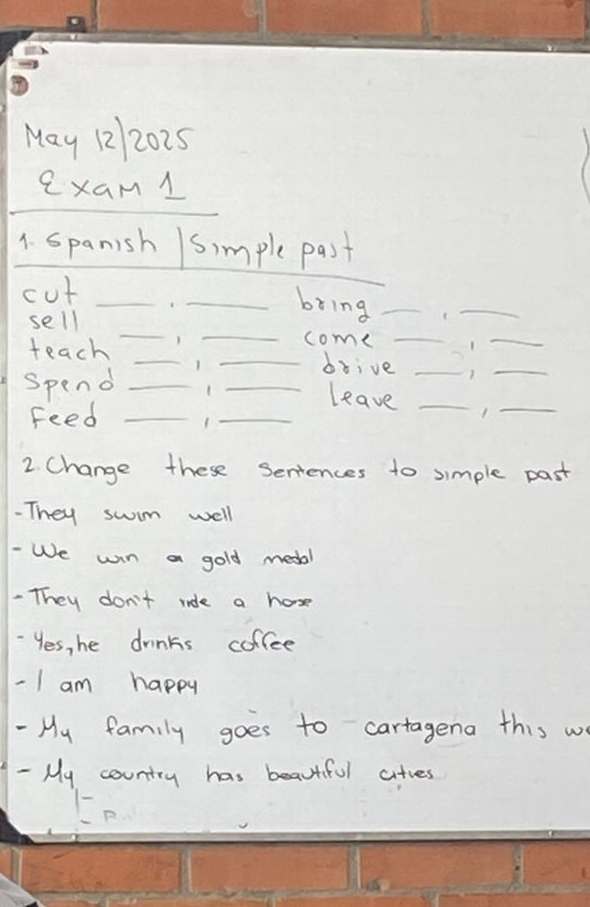 May 12/2025
Exam 1
1. Spanish | Simple past
cut ___ . ___ bring ___ , ___
sell ___ , ___ come ___ , ___
teach ___ , ___ drive ___ , ___
Spend ___ , ___ leave ___ , ___
Feed ___ , ___
2. Change these sentences to simple past
- They swim well
- We win a gold medal
- They don't ride a horse
- Yes, he drinks coffee
- I am happy
- My family goes to cartagena this
- My country has beautiful cities